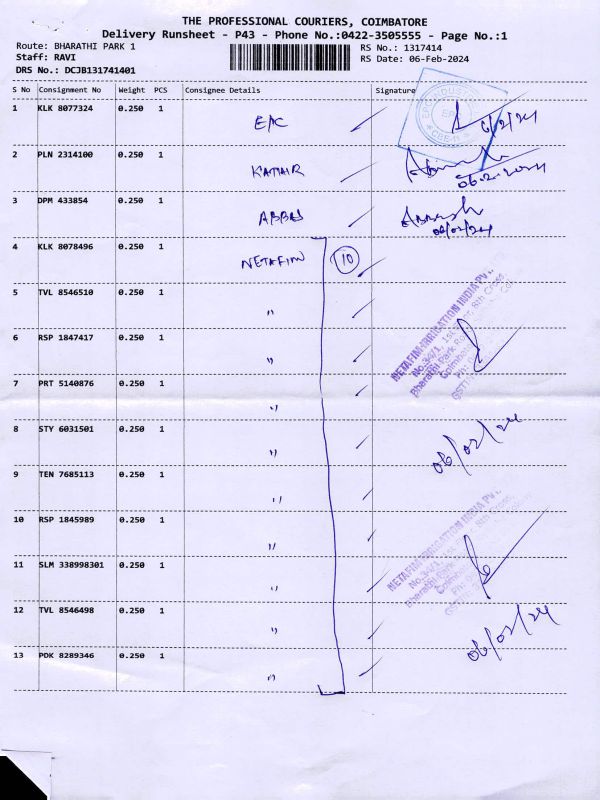 THE PROFESSIONAL COURIERS, COIMBATORE
Delivery Runsheet - P43 - Phone No.:0422-3505555 - Page No.:1
Route: BHARATHI PARK 1 RS No.: 1317414
Staff: RAVI RS Date: 06-Feb-2024
DRS No.: DCJB131741401
S No Consignment No Weight PCS Consignee Details Signature
1 KLK 8077324 0.250 1 EAC 6/2/24
2 PLN 2314100 0.250 1 06-2-2024
3 DPM 433854 0.250 1 ABBAS 06/02/24
4 KLK 8078496 0.250 1 NETAFIM 10
5 TVL 8546510 0.250 1 "
NETAFIM IRRIGATION INDIA PVT.
No.34/1, 1st Floor, 8th Cross,
Bharathi Park Road
Coimbatore
6 RSP 1847417 0.250 1 "
7 PRT 5140876 0.250 1 "
8 STY 6031501 0.250 1 " 06/02/24
9 TEN 7685113 0.250 1 "
10 RSP 1845989 0.250 1 "
NETAFIM IRRIGATION INDIA PVT.
No.34/1, 1st Floor, 8th Cross,
Bharathi Park
Coimbatore
11 SLM 338998301 0.250 1 "
12 TVL 8546498 0.250 1 " 06/02/24
13 PDK 8289346 0.250 1 "